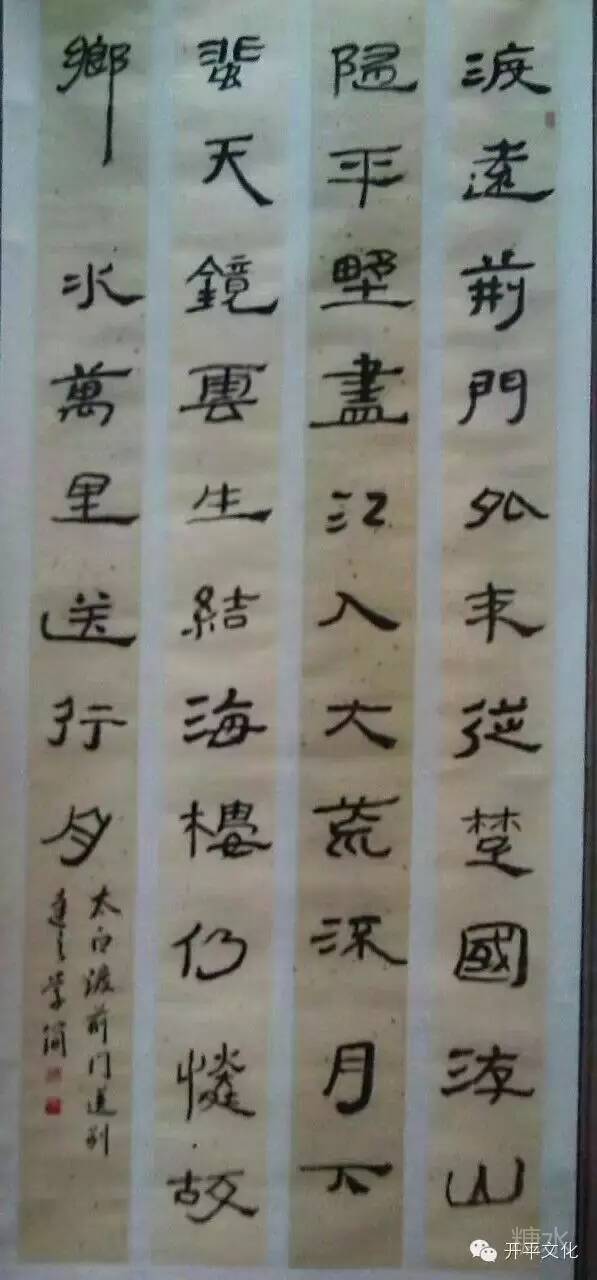 渡遠荊門外来從楚國游山
隨平野盡江入大荒流月下
蜚天鏡雲生結海樓仍憐故
鄉水萬里送行舟
太白渡荆门送别
糖水
开平文化